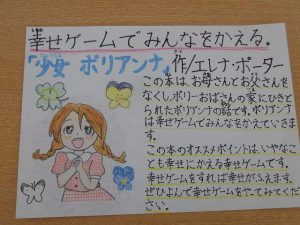 幸せゲームでみんなをかえる。
「少女 ポリアンナ」作/エレナ・ポーター
この本は、お母さんとお父さんを
なくし、ポリーおばさんの家にひきと
られたポリアンナの話です。ポリアンナ
は幸せゲームでみんなをかえていきま
す。
この本のオススメポイントは、いやなこ
とも幸せにかえる幸せゲームです。
幸せゲームをすれば幸せがふえます。
ぜひよんで幸せゲームをやってみてくだ
さい。